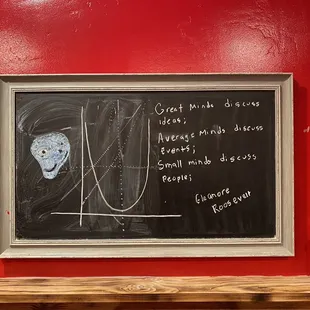 Great Minds discuss
ideas;
Average Minds discuss
events;
Small minds discuss
people;
Eleanore
Roosevelt